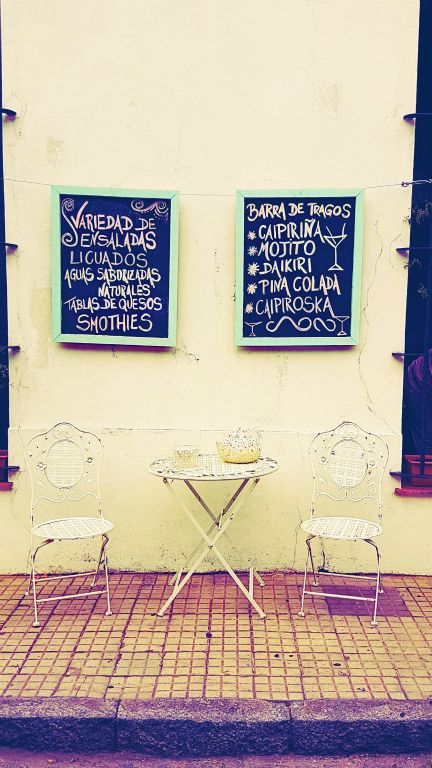 VARIEDAD DE
ENSALADAS
LICUADOS
AGUAS SABORIZADAS
NATURALES
TABLAS DE QUESOS
SMOTHIES
BARRA DE TRAGOS
* CAIPIRIÑA
* MOJITO
* DAIKIRI
* PINA COLADA
* CAIPIROSKA